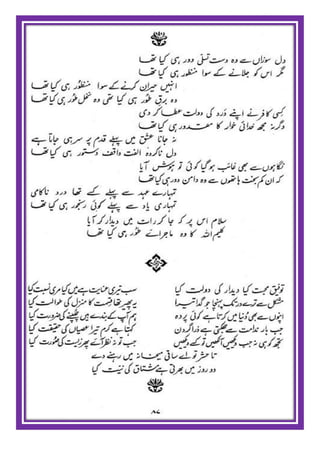 دل سوزاں سے وہ دست تسلی دور ہی کیا تھا
مگر اس کو جلانے کے سوا منظور ہی کیا تھا
انہیں حیران کرنے کے سوا منظور ہی کیا تھا
وہ برق طور ہی کیا تھی وہ نخل طور ہی کیا تھا
کسی کافر نے اپنے درد کی دولت عطا کر دی
وگرنہ مجھ خدائی خوار کا مقدور ہی کیا تھا
نہ جانا عشق میں پہلے قدم پر سر ہی جاتا ہے
دل ناکردہ الفت واقف دستور ہی کیا تھا
نگاہوں سے بھی غائب ہو گیا کوئی تو ہوش آیا
کہ ان کمبخت ہاتھوں سے وہ دامن دور ہی کیا تھا
تمہارے عہد سے پہلے کسے تھا درد ناکامی
تمہاری یاد سے پہلے کوئی رنجور ہی کیا تھا
سلام اس پر کہ جا کر رات میں دیدار کر آیا
کلیم اللہ کا وہ ماجرائے طور ہی کیا تھا
توفیق محبت کیا دیدار کی دولت کیا
سب تیری عنایت ہے کیا میں ہے مری نسبت کیا
مشکل سے ترے در تک پہنچا ہے گدا تیرا
یہ بھی نہ تھا قسمت کا منزل کی طوالت کیا
اپنوں سے بھی دنیا میں کرتا ہے کوئی پردہ
ہم آپ کے بندے ہیں کی ضرورت کیا
جب بار ندامت سے جھکتی ہے ذرا گردن
کہتا ہے کرم تیرا عصیاں کی حقیقت کیا
تجھ کو ہی نہ جب دیکھیں آنکھیں تو کسے دیکھیں
جب تو نہ نظر آئے پھر زیست کی صورت کیا
تا حشر تو اے ساقی میخانہ میں رہنے دے
دو روز میں بھرتی ہے مشتاق کی نیت کیا
۸۷